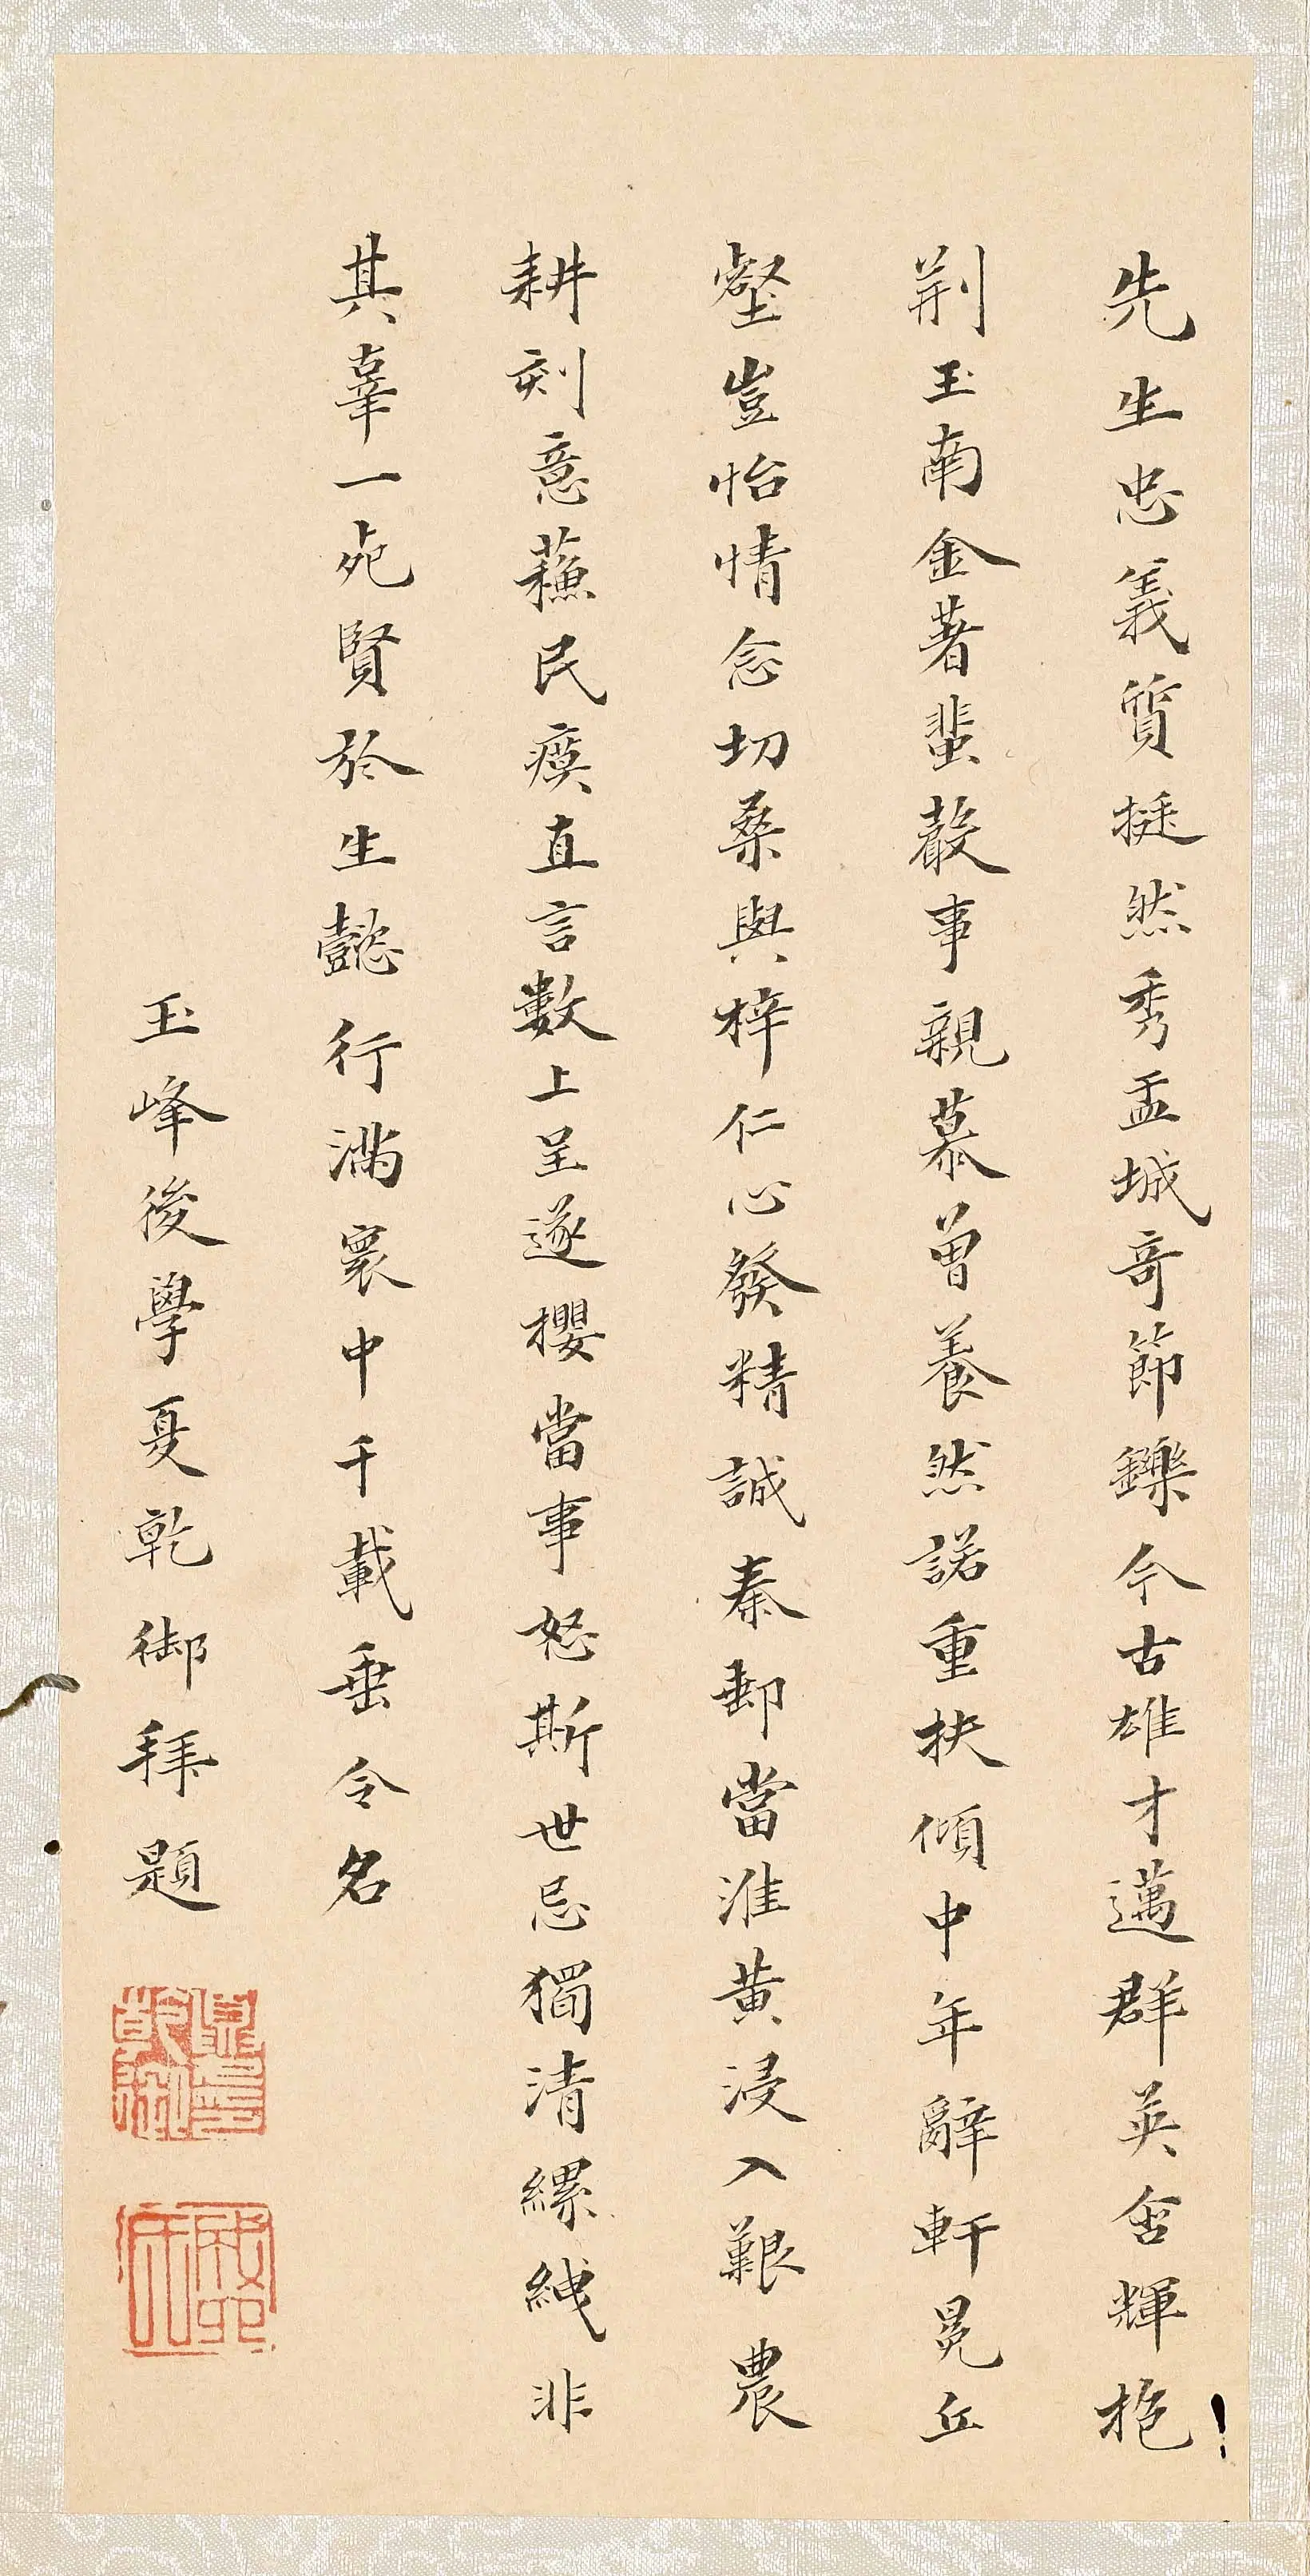 先生忠義質挺然秀盂城奇節鑠今古雄才邁群英含輝抱
荆玉南金著蜚聲事親慕曾養然諾重扶傾中年辭軒冕丘
壑豈怡情念切桑與梓仁心發精誠秦郵當淮黄浸入艱農
耕刻意蘓民瘼直言數上呈遂攖當事怒斯世忌獨清縲絏非
其辜一死賢於生懿行滿寰中千載垂令名
玉峰後學夏乾御拜題